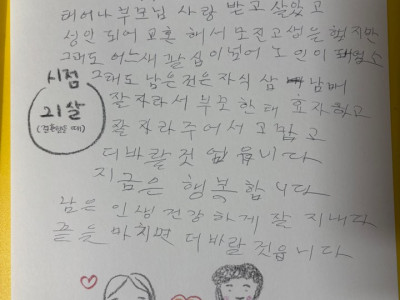 태어나 부모님 사랑 받고 살았고
성인 되어 결혼 해서 모진고생을 했지만
그래도 어느새 팔 십이 넘어 노인이
시점
21살
(결혼했을 때)
그래도 남은 것은 자식 삼 남매
잘 자라서 부모 한태 효자하고
잘 자라 주어서 고맙고
더 바랄 것 없읍니다
지금은 행복합니다
남은 인생 건강 하게 잘 지내다
끝을 마치면 더 바랄 것읍니다